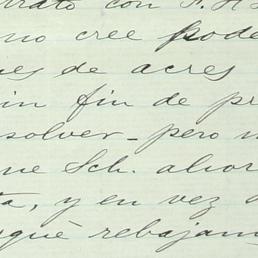 trato con J. H
no cree pode
es de acres
in fin de pr
solver - pero n
ue Sch. ahor
ta, y en vez d
qué rebajam